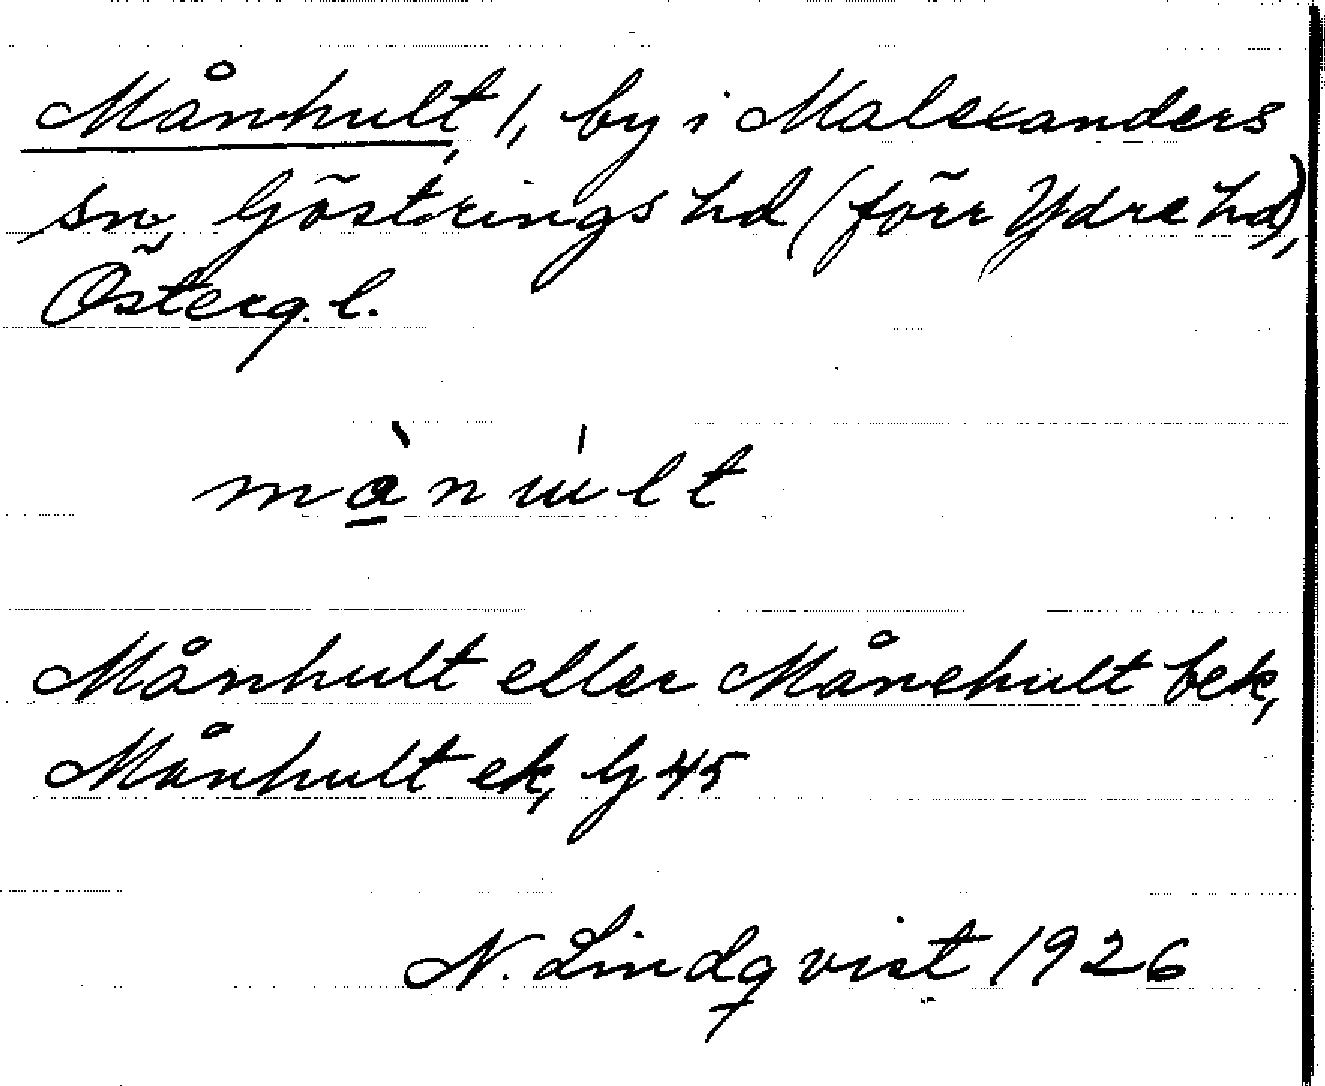 Månhult 1, by i Malexanders
sn, Göstrings hd (förr Ydre hd),
Österg. l.
Månhult eller Månehult bek,
Månhult ek, G 45
N. Lindqvist 1926